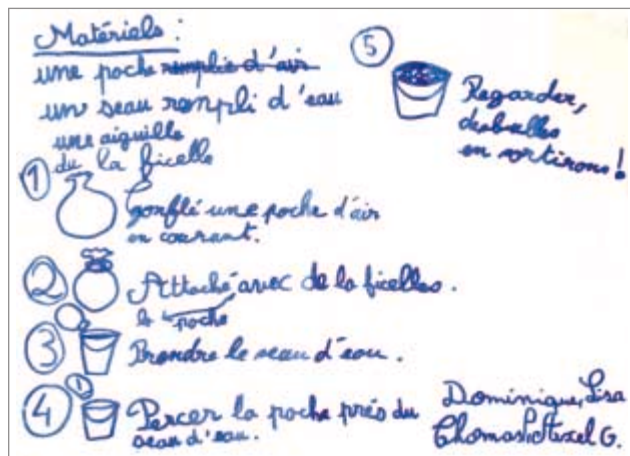 Matériels :
une poche remplie d'air
un seau rempli d'eau
une aiguille
du la ficelle
1
Gonflé une poche d'air
en courant.
2
Attaché avec de la ficelles.
la poche
3
Prendre le seau d'eau.
4
Percer la poche prés du
seau d'eau.
5
Regarder,
desbulles
en sortirons !
Dominique, Lisa
Thomas, Axel G.